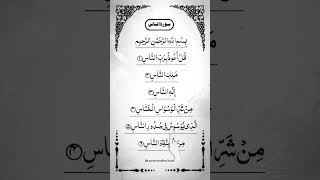 سورة الناس
بِسْمِ اللّٰهِ الرَّحْمٰنِ الرَّحِيْمِ
قُلْ اَعُوْذُ بِرَبِّ النَّاسِ ۝۱
مَلِكِ النَّاسِ ۝۲
اِلٰهِ النَّاسِ ۝۳
مِنْ شَرِّ الْوَسْوَاسِ الْخَنَّاسِ ۝۴
الَّذِيْ يُوَسْوِسُ فِيْ صُدُوْرِ النَّاسِ ۝۵
مِنَ النَّاسِ ۝۶